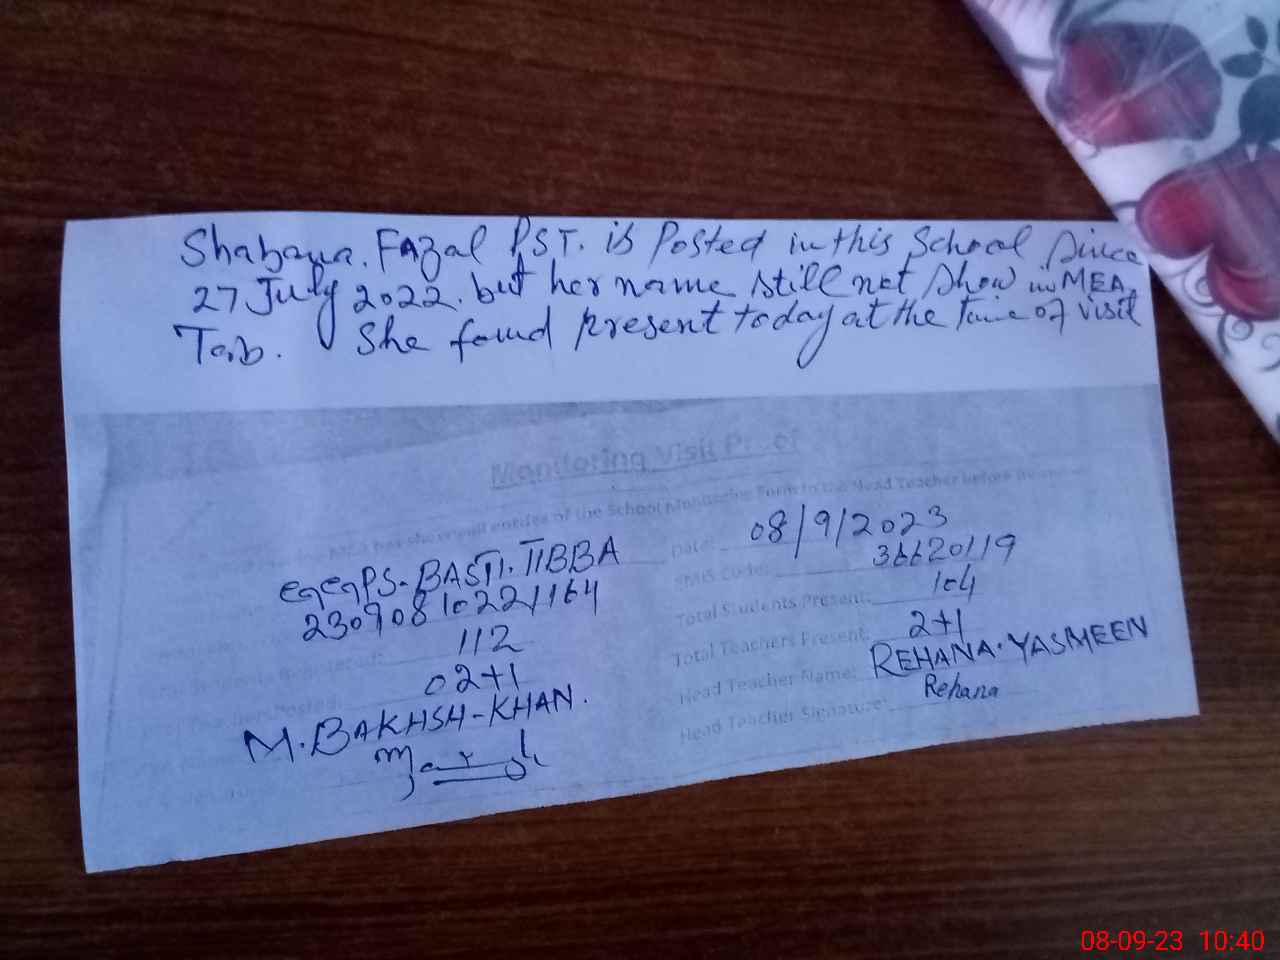 Shabana. Fazal PST. is Posted in this School Since
27 July 2022. but her name still not show in MEA,
Tab. She found present today at the time of visit
Monitoring Visit Proof
entries of the School Monitoring Form to the Head Teacher before
GGPS-BASTI.TIBBA
Date: 08/9/2023
EMIS Code: 36620119
112
Total Students Present: 104
02+1
Total Teachers Present: 2+1
M.BAKHSH-KHAN.
Head Teacher Name: REHANA.YASMEEN
Head Teacher Signature: Rehana
08-09-23 10:40